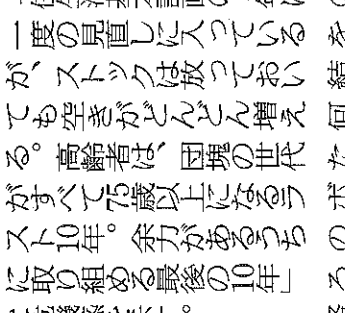 一度の見直しに入っている
が、ストックは放っておい
ても空きがどんどん増え
る。高齢者は、団塊の世代
がすべて75歳以上になるラ
スト10年。余力があるうち
に取り組める最後の10年」
を
結
何
た
ボ
の
ろ